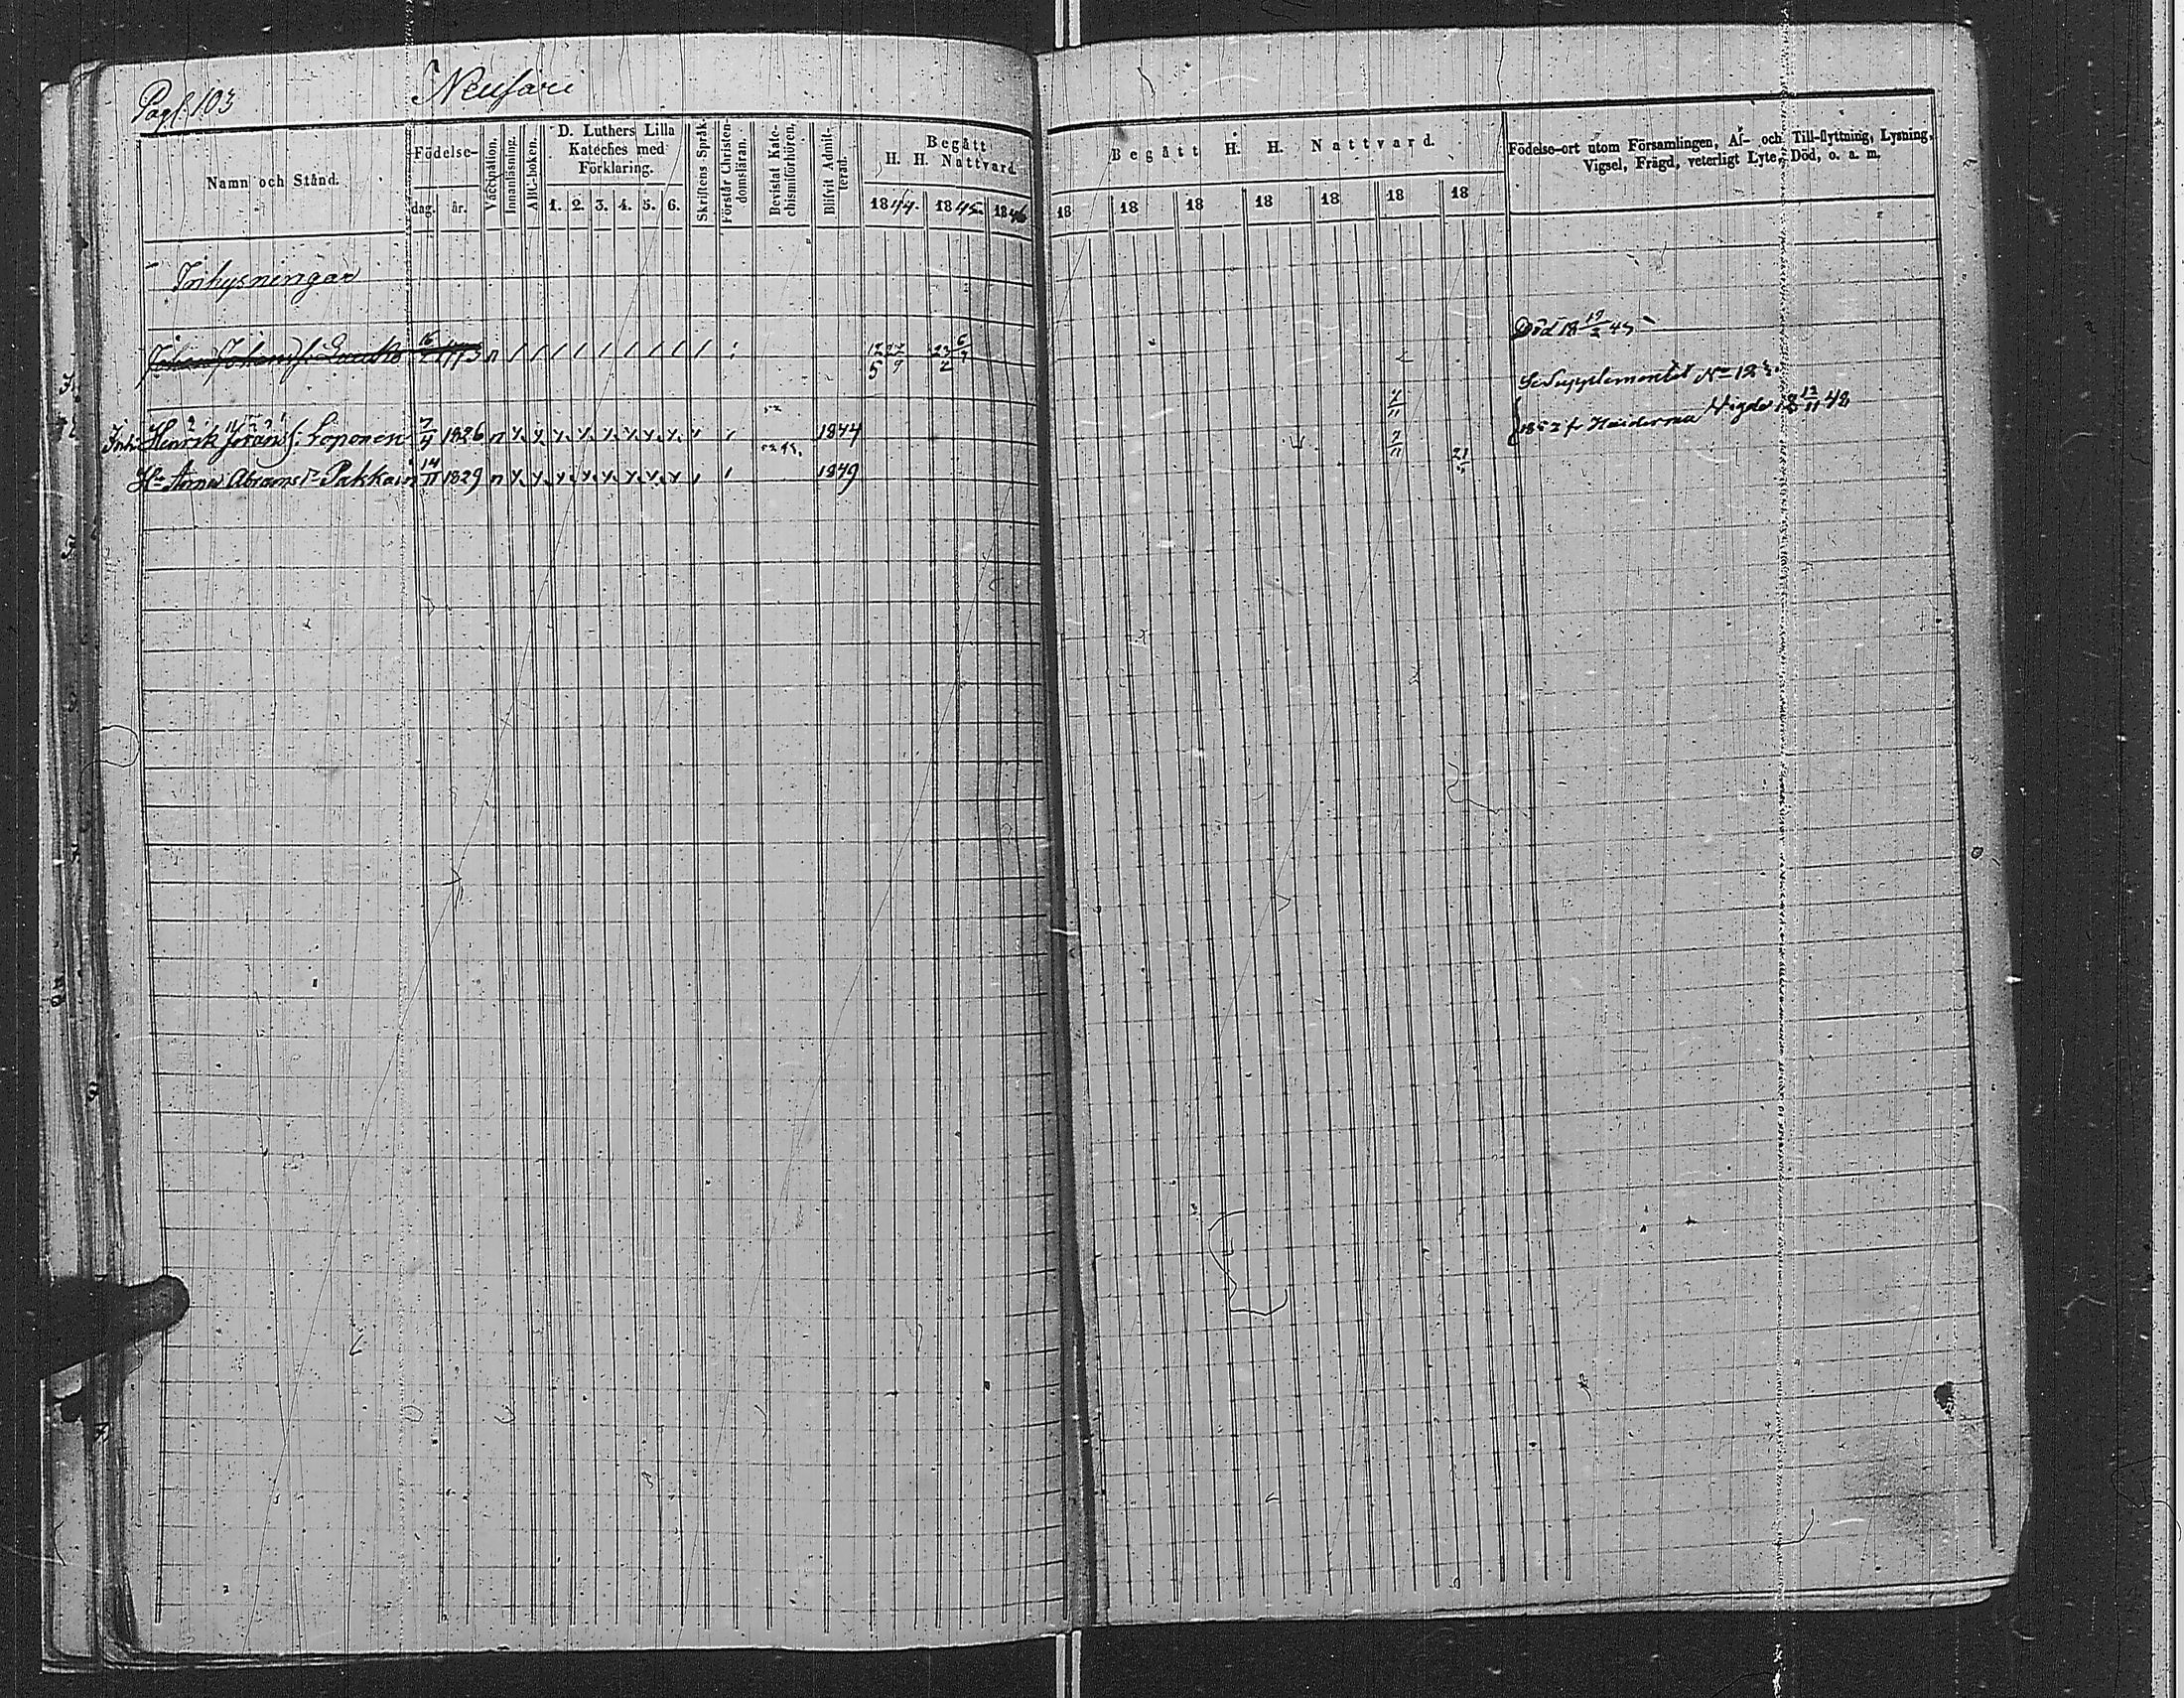 Pag. 103
Neusari
Namn och Stånd.
Födelse-
dag.
år.
Vaccination.
Innanläsning.
ABC-boken.
D. Luthers Lilla
Kateches med
Förklaring.
1. 2. 3. 4. 5. 6.
Skriftens Språk.
Förstår Christen-
domsläran.
Bevistat Kate-
chismiförhören.
Blifvit Admit-
terad.
Begått
H. H. Nattvard.
1844. 1845. 1846
Begått H. H. Nattvard.
18 18 18 18 18 18 18
Födelse-ort utom Församlingen, Af- och Till-flyttning, Lysning,
Vigsel, Frägd, veterligt Lyte, Död, o. a. m.
Inhysningar
Johan Johansf. 16 1773 n 12/5 27/9 23/2 6/7 Död 18 19/3 45
Se Supplementet No 123.
Inh. Henrik Göransf. Loponen 7/4 1826 n 1844 7/11 1852 fr Vigde 18 12/11 48
Hu Anna Abramsdr Pakkain 14/11 1829 n 1849 7/11 21